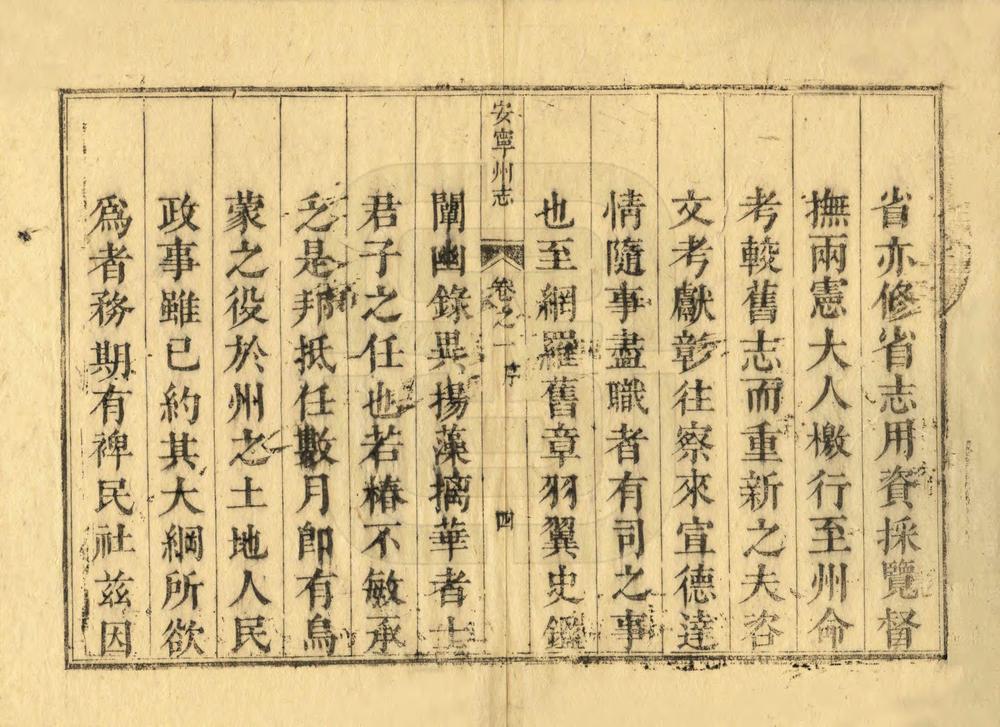 省亦修省志用資採覽督
撫兩憲大人檄行至州命
考較舊志而重新之夫咨
文考獻彰往察來宣德達
情隨事盡職者有司之事
也至網羅舊章羽翼史鑑
安寧州志 卷之一 序 四
闡幽錄異揚藻摛華者士
君子之任也若椿不敏承
乏是邦抵任數月即有烏
蒙之役於州之土地人民
政事雖已約其大綱所欲
爲者務期有裨民社兹因